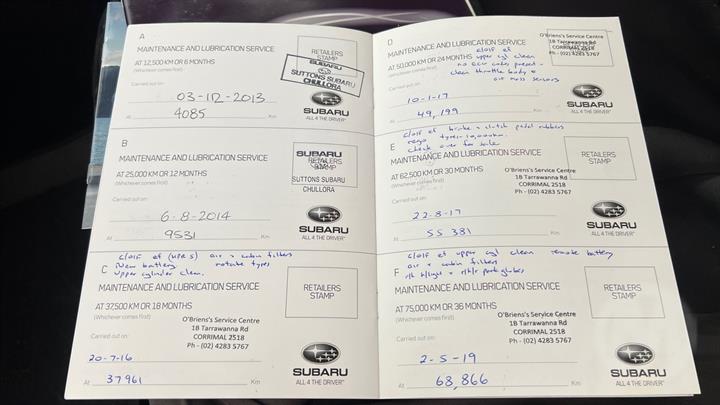 A
MAINTENANCE AND LUBRICATION SERVICE
AT 12,500 KM OR 6 MONTHS
(Whichever comes first)
RETAILERS
STAMP
SUBARU
SUTTONS SUBARU
CHULLORA
Carried out on:
03-112-2013
At 4085 Km
SUBARU
ALL 4 THE DRIVER
B
MAINTENANCE AND LUBRICATION SERVICE
AT 25,000 KM OR 12 MONTHS
(Whichever comes first)
SUBARU
RETAILERS
STAMP
SUTTONS SUBARU
CHULLORA
Carried out on:
6-8-2014
At 9531 Km
SUBARU
ALL 4 THE DRIVER
air + cabin filters
New battery rotate tyres
Upper cylinder clean.
C
MAINTENANCE AND LUBRICATION SERVICE
AT 37,500 KM OR 18 MONTHS
(Whichever comes first)
RETAILERS
STAMP
O'Briens's Service Centre
1B Tarrawanna Rd
CORRIMAL 2518
Ph - (02) 4283 5767
Carried out on:
20-7-16
At 37961 Km
SUBARU
ALL 4 THE DRIVER
D
MAINTENANCE AND LUBRICATION SERVICE
AT 50,000 KM OR 24 MONTHS
(Whichever comes first)
O'Briens's Service Centre
1B Tarrawanna Rd
CORRIMAL 2518
Ph - (02) 4283 5767
upper cyl clean
clean throttle body +
air mass sensors
Carried out on:
10-1-17
At 49,199 Km
SUBARU
ALL 4 THE DRIVER
brake + clutch pedal rubbers
check over for sale
E
MAINTENANCE AND LUBRICATION SERVICE
AT 62,500 KM OR 30 MONTHS
(Whichever comes first)
RETAILERS
STAMP
O'Briens's Service Centre
1B Tarrawanna Rd
CORRIMAL 2518
Ph - (02) 4283 5767
Carried out on:
22-8-17
At 55 381 Km
SUBARU
ALL 4 THE DRIVER
upper cyl clean remote battery
air + cabin filters
F
MAINTENANCE AND LUBRICATION SERVICE
AT 75,000 KM OR 36 MONTHS
(Whichever comes first)
RETAILERS
STAMP
O'Briens's Service Centre
1B Tarrawanna Rd
CORRIMAL 2518
Ph - (02) 4283 5767
Carried out on:
2-5-19
At 68,866 Km
SUBARU
ALL 4 THE DRIVER